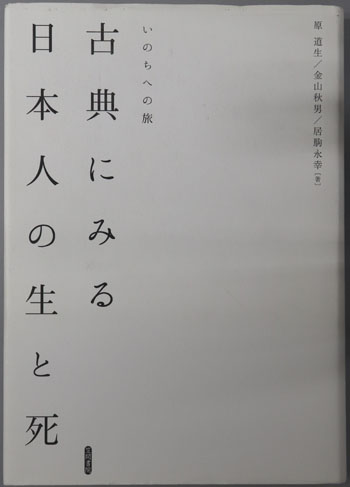 原 道生／金山秋男／居駒永幸［著］
いのちへの旅
古典にみる
日本人の生と死
笠間書院